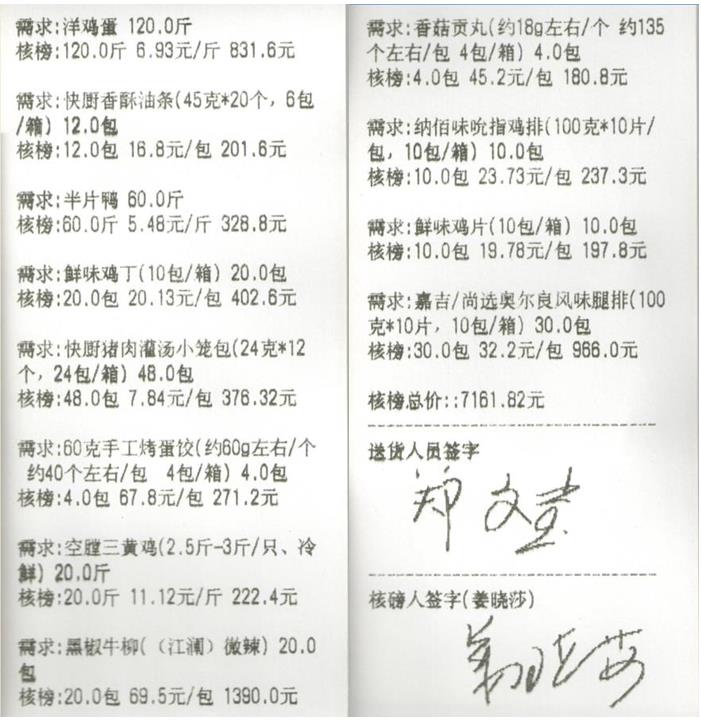 需求:洋鸡蛋 120.0斤
核榜:120.0斤 6.93元/斤 831.6元
需求:快厨香酥油条(45克*20个, 6包
/箱) 12.0包
核榜:12.0包 16.8元/包 201.6元
需求:半片鸭 60.0斤
核榜:60.0斤 5.48元/斤 328.8元
需求:鲜味鸡丁(10包/箱) 20.0包
核榜:20.0包 20.13元/包 402.6元
需求:快厨猪肉灌汤小笼包(24克*12
个, 24包/箱) 48.0包
核榜:48.0包 7.84元/包 376.32元
需求:60克手工烤蛋饺(约60g左右/个
约40个左右/包 4包/箱) 4.0包
核榜:4.0包 67.8元/包 271.2元
需求:空膛三黄鸡(2.5斤-3斤/只、冷
鲜) 20.0斤
核榜:20.0斤 11.12元/斤 222.4元
需求:黑椒牛柳(（江澜）微辣) 20.0
包
核榜:20.0包 69.5元/包 1390.0元
需求:香菇贡丸(约18g左右/个 约135
个左右/包 4包/箱) 4.0包
核榜:4.0包 45.2元/包 180.8元
需求:纳佰味吮指鸡排(100克*10片/
包, 10包/箱) 10.0包
核榜:10.0包 23.73元/包 237.3元
需求:鲜味鸡片(10包/箱) 10.0包
核榜:10.0包 19.78元/包 197.8元
需求:嘉吉/尚选奥尔良风味腿排(100
克*10片, 10包/箱) 30.0包
核榜:30.0包 32.2元/包 966.0元
核榜总价::7161.82元
送货人员签字
郑文
核磅人签字(姜晓莎)
姜晓莎